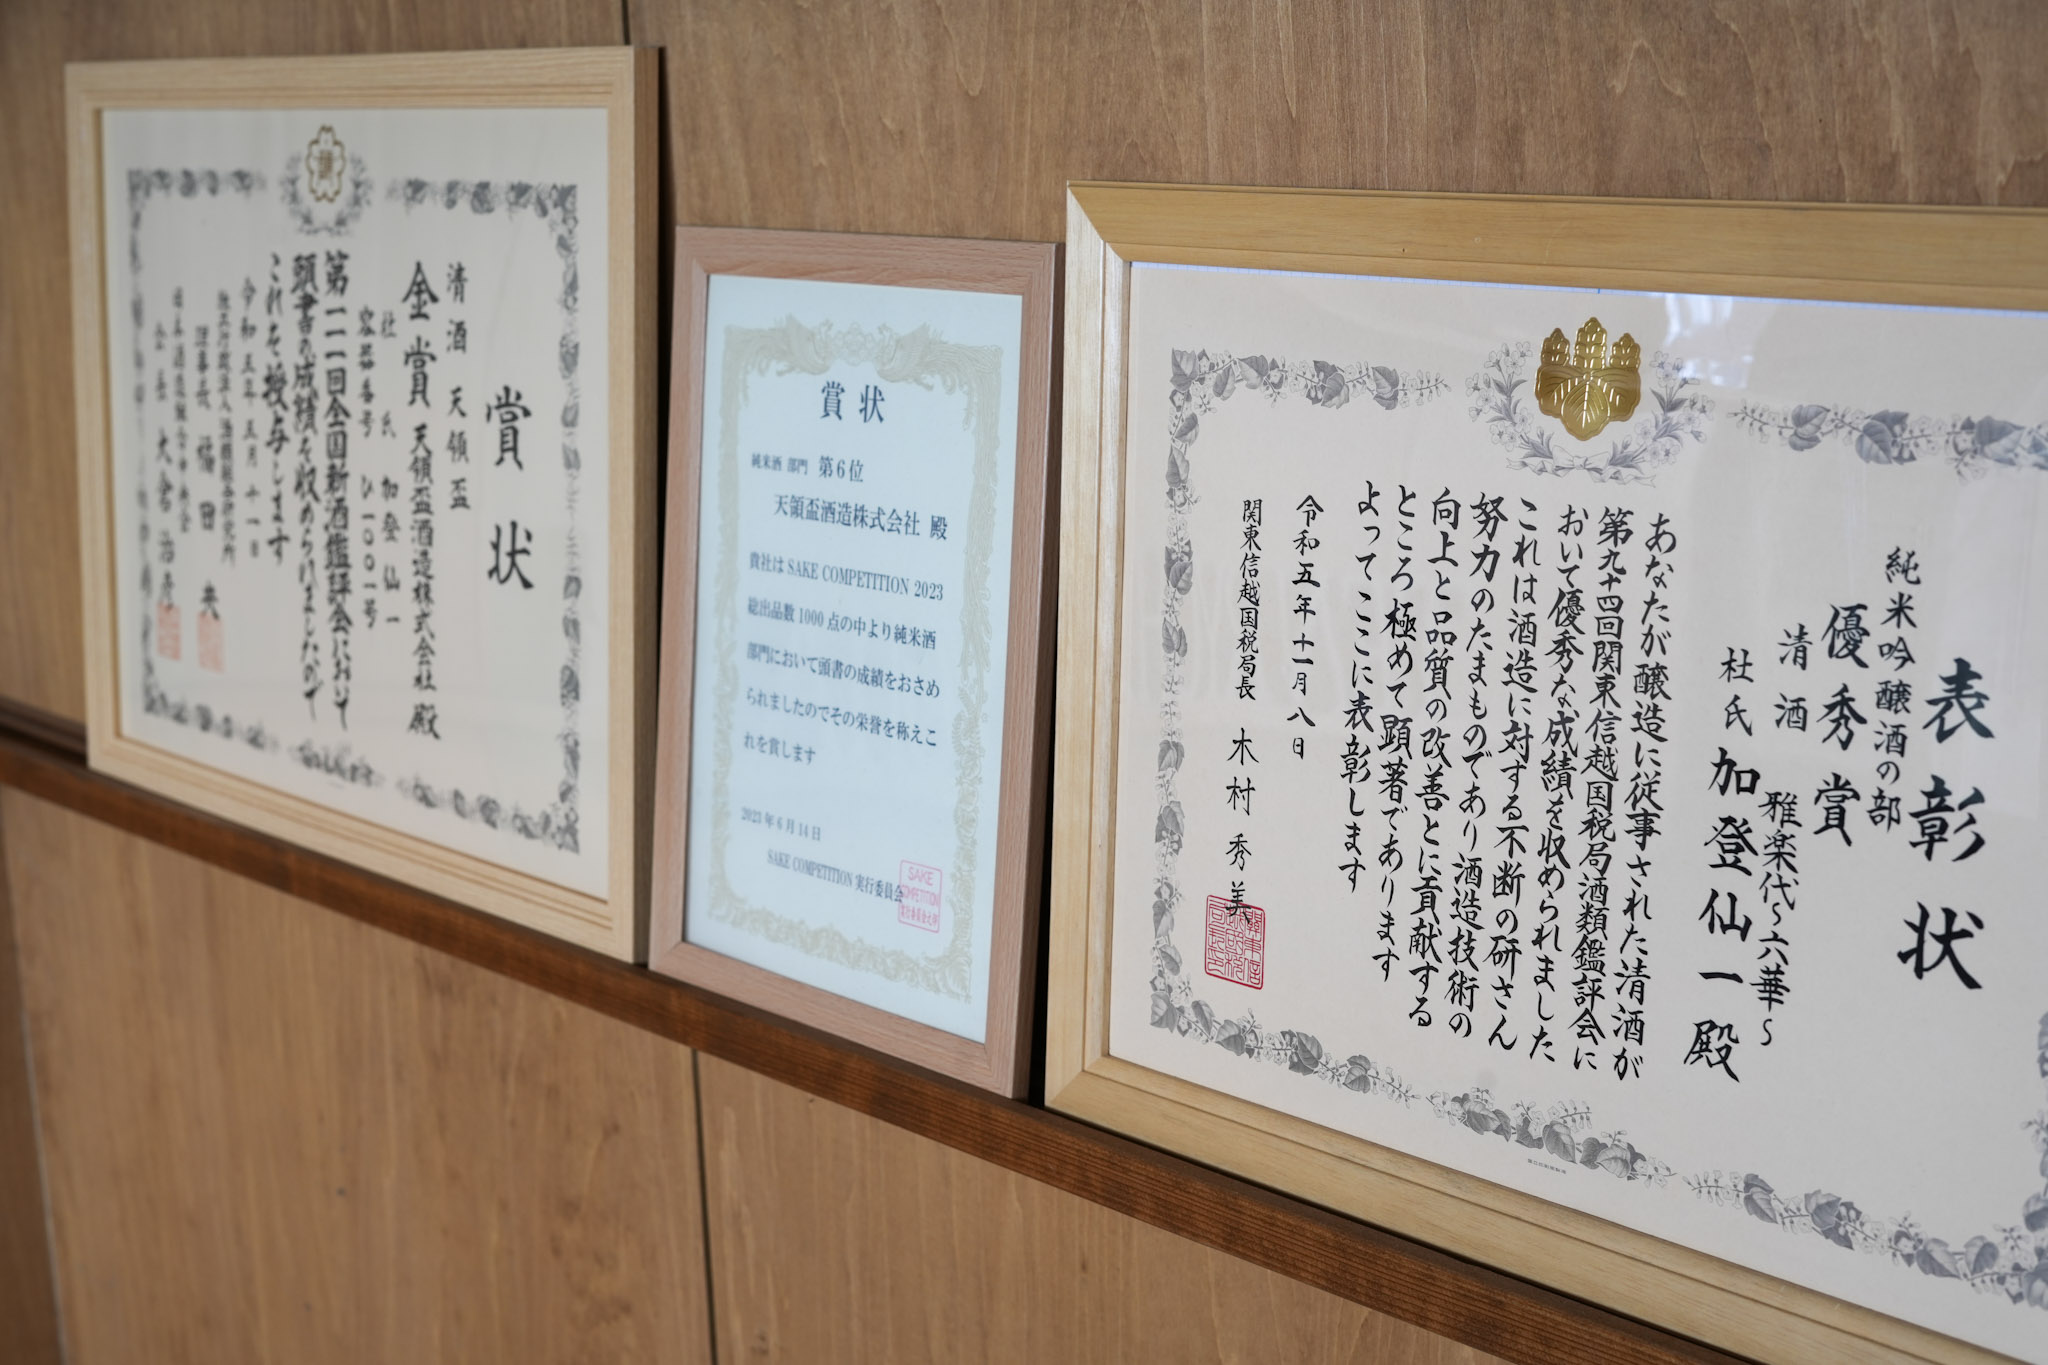 賞状
清酒 天領盃
金賞 天領盃酒造株式会社 殿
杜氏 加登仙一
容器番号 ひ一〇〇一号
第一一一回全国新酒鑑評会において
頭書の成績を収められましたので
これを授与します
令和五年五月十一日
独立行政法人酒類総合研究所
理事長 福田 央
日本酒造組合中央会
会長 大倉治彦
賞状
純米酒 部門 第6位
天領盃酒造株式会社 殿
貴社は SAKE COMPETITION 2023
総出品数 1000 点の中より純米酒
部門において頭書の成績をおさめ
られましたのでその栄誉を称えこ
れを賞します
2023 年 6 月 14 日
SAKE COMPETITION 実行委員会
SAKE
COMPETITION
実行委員会之印
表彰状
純米吟醸酒の部
優秀賞
清酒 雅楽代～六華～
杜氏 加登仙一 殿
あなたが醸造に従事された清酒が
第九十四回関東信越国税局酒類鑑評会に
おいて優秀な成績を収められました
これは酒造に対する不断の研さん
努力のたまものであり酒造技術の
向上と品質の改善とに貢献する
ところ極めて顕著であります
よってここに表彰します
令和五年十一月八日
関東信越国税局長 木村秀美